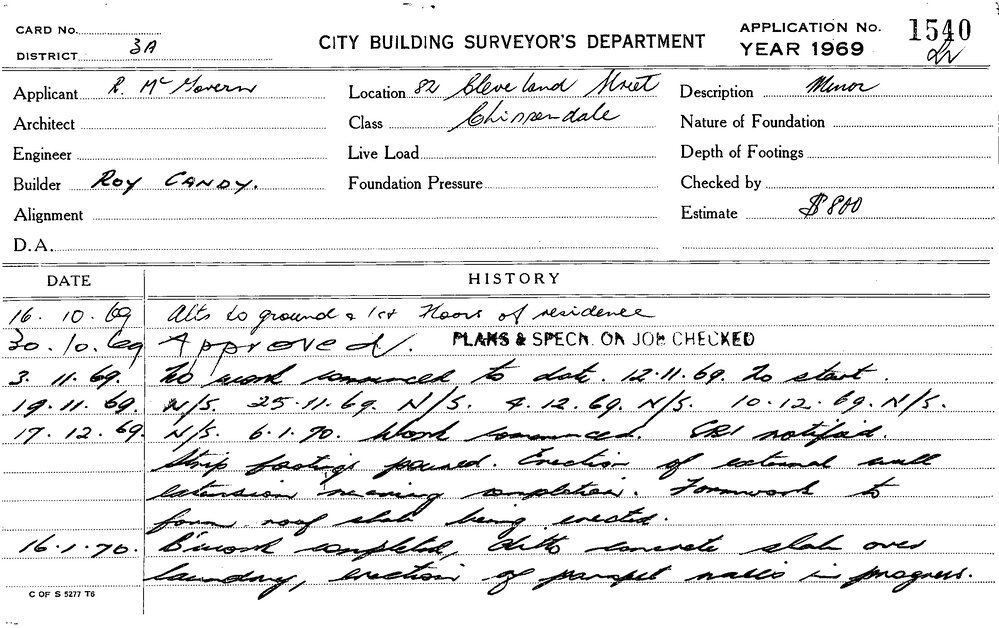 CARD No.
DISTRICT 3A
CITY BUILDING SURVEYOR'S DEPARTMENT
APPLICATION No. 1540
YEAR 1969
Applicant R. McGovern
Location 82 Cleveland Street
Description Minor
Architect
Class Chippendale
Nature of Foundation
Engineer
Live Load
Depth of Footings
Builder ROY CANDY.
Foundation Pressure
Checked by
Alignment
Estimate $800
D.A.
DATE HISTORY
16. 10. 69 Alts to ground & 1st Floors of residence
30. 10. 69 Approved. PLANS & SPECN. ON JOB CHECKED
3. 11. 69. No work commenced to date. 12.11.69. No start.
19. 11. 69. N/S. 25.11.69. N/S. 4.12.69. N/S. 10.12.69. N/S.
17. 12. 69. N/S. 6.1.70. Work commenced. notified.
Strip footings poured. Erection of external wall
extension nearing completion. Formwork to
form roof slab being erected.
16.1.70. B'work completed, ditto concrete slab over
laundry, erection of parapet walls in progress.
C OF S 5277 T6